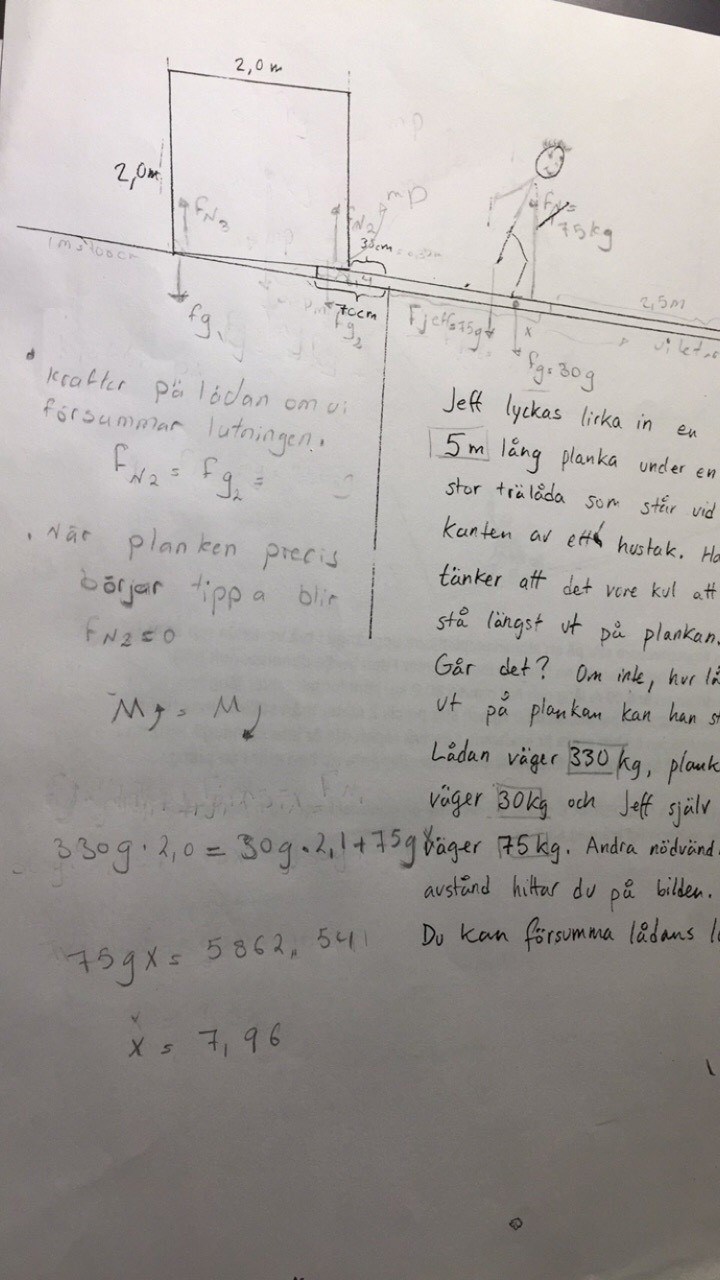 2,0m
2,0m
FN3
FN2
mp
30cm
70cm
fg1
fg2
75kg
2,5m
Fjeff=75g
x
fg=30g
• Krafter på lådan om vi
försummar lutningen.
FN2 = Fg2 =
• När planken precis
börjar tippa blir
FN2=0
M = M
330g · 2,0 = 30g · 2,1 + 75g
75gx = 5862,54
x = 7,96
Jeff lyckas lirka in en
5m lång planka under en
stor trälåda som står vid
kanten av ett hustak. Ha
tänker att det vore kul att
stå längst ut på plankan.
Går det? Om inte, hur lå
ut på plankan kan han st
Lådan väger 330 kg, plank
väger 30kg och Jeff själv
väger 75kg. Andra nödvänd
avstånd hittar du på bilden.
Du kan försumma lådans l